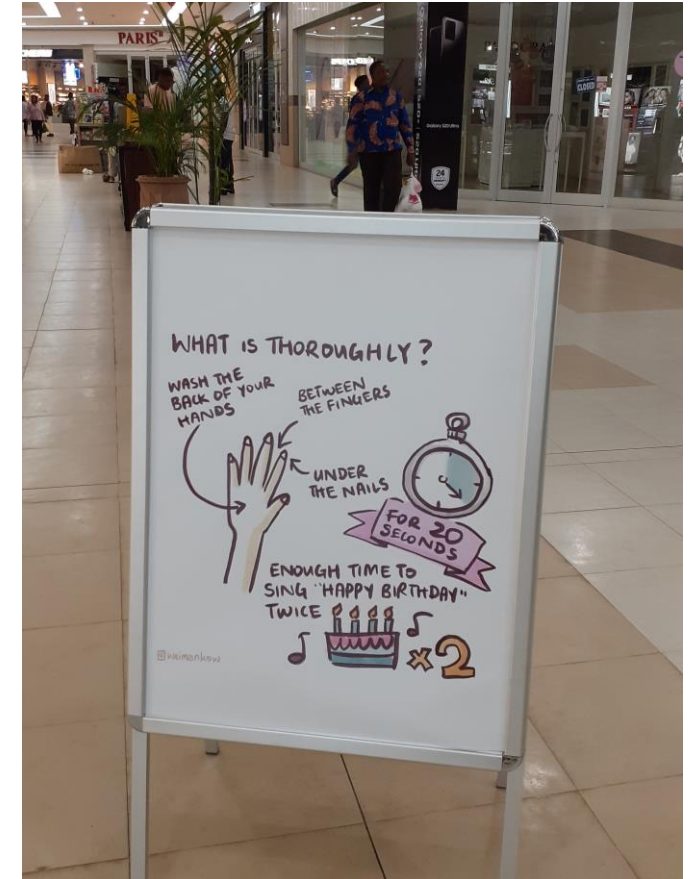 PARIS
CLOSED
Galaxy S20 Ultra
24
WHAT IS THOROUGHLY?
WASH THE
BACK OF YOUR
HANDS
BETWEEN
THE FINGERS
UNDER
THE NAILS
FOR 20
SECONDS
ENOUGH TIME TO
SING "HAPPY BIRTHDAY"
TWICE
x2
weimankow